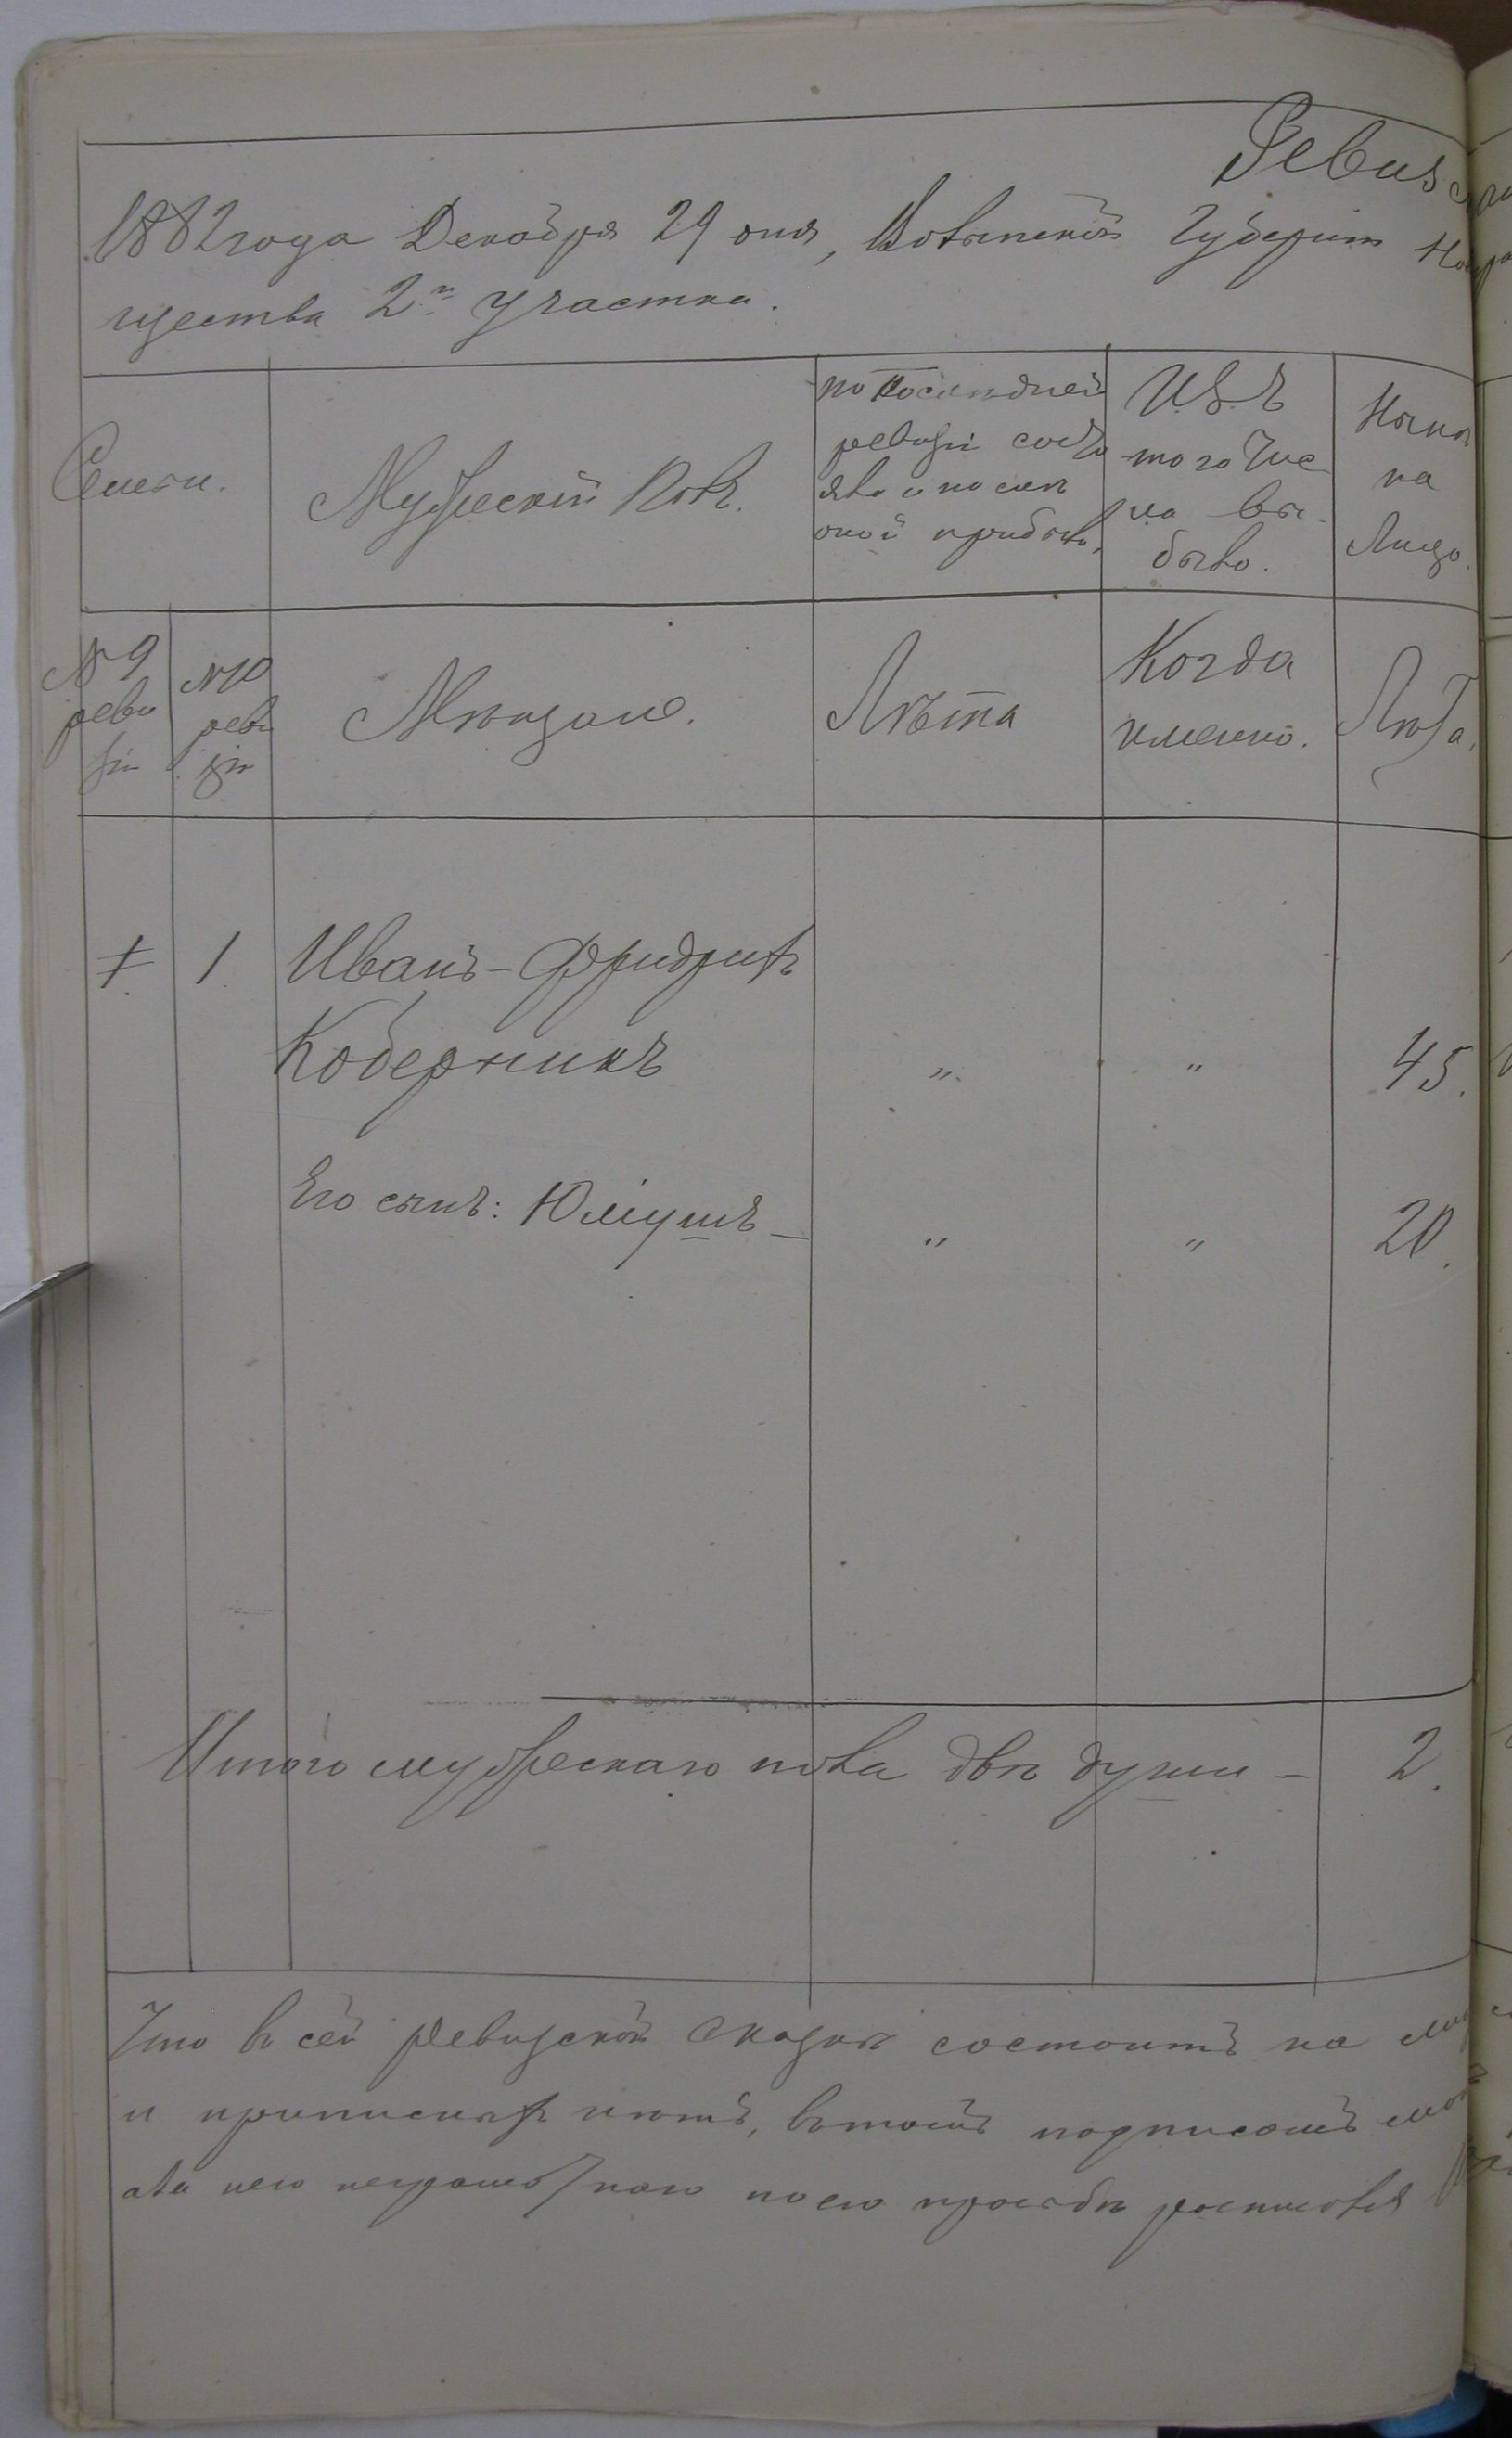 Ревизс
1882 года Декабря 29 дня, Волынской Губерніи Но
щества 2го участка.
Семьи.
Мужескій Полъ.
по Послѣдней
ревизіи состо
яло и послѣ
оной прибыло,
Изъ
того Чис
ла вы
было.
Нынѣ
на
Лицо.
№ 9
реви
зіи
№ 10
реви
зіи
Мѣщане.
Лѣта
Когда
именно.
Лѣта,
1 Иванъ-Фридрихъ
Коберникъ " " 45.
Его сынъ: Юліушъ — " " 20.
Итого мужескаго пола двѣ души — 2.
Что въ сей Ревизской Сказкѣ состоитъ на
и прописныхъ нѣтъ, въ томъ подписомъ
а за него неграмотнаго по его просьбѣ росписался